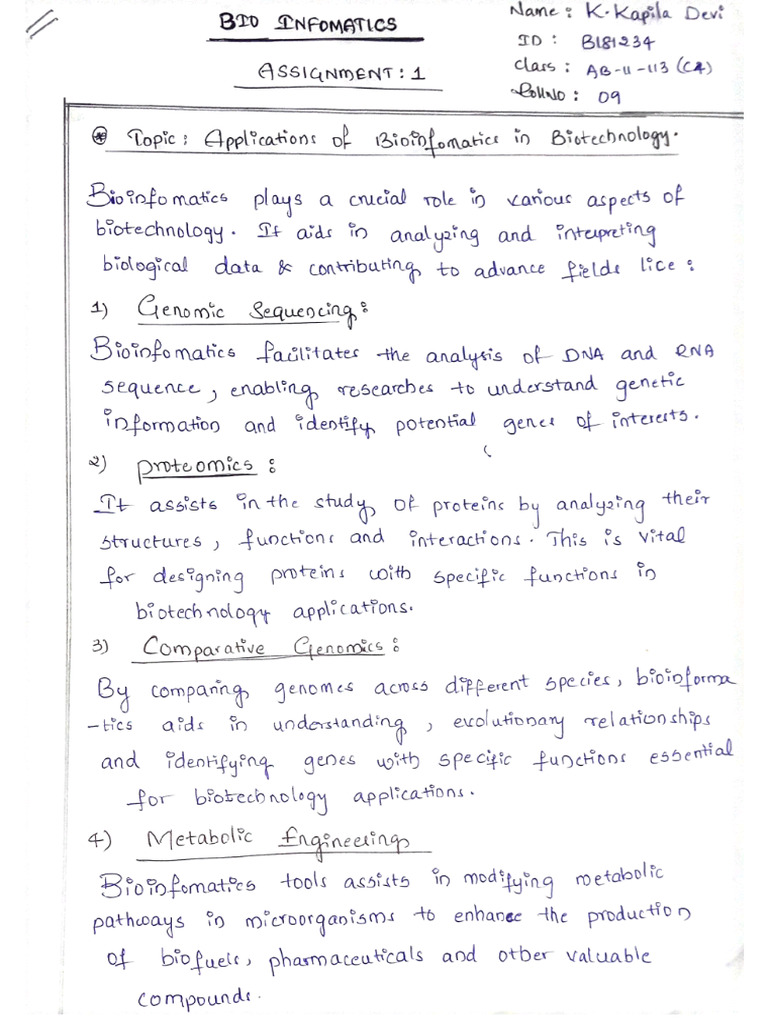 BIO INFOMATICS
ASSIGNMENT: 1
Name: K. Kapila Devi
ID: B181234
Class: AB-II-113 (C4)
Roll No: 09
Topic: Applications of Bioinfomatics in Biotechnology.
Bioinfomatics plays a crucial role in various aspects of
biotechnology. It aids in analyzing and interpreting
biological data & contributing to advance fields lice:
1) Genomic Sequencing:
Bioinfomatics facilitates the analysis of DNA and RNA
sequence, enabling researches to understand genetic
information and identify potential genes of interests.
2) proteomics:
It assists in the study of proteins by analyzing their
structures, functions and interactions. This is vital
for designing proteins with specific functions in
biotechnology applications.
3) Comparative Genomics:
By comparing genomes across different species, bioinforma
-tics aids in understanding, evolutionary relationships
and identifying genes with specific functions essential
for biotechnology applications.
4) Metabolic Engineering
Bioinfomatics tools assists in modifying metabolic
pathways in microorganisms to enhance the production
of biofuels, pharmaceuticals and other valuable
compounds.